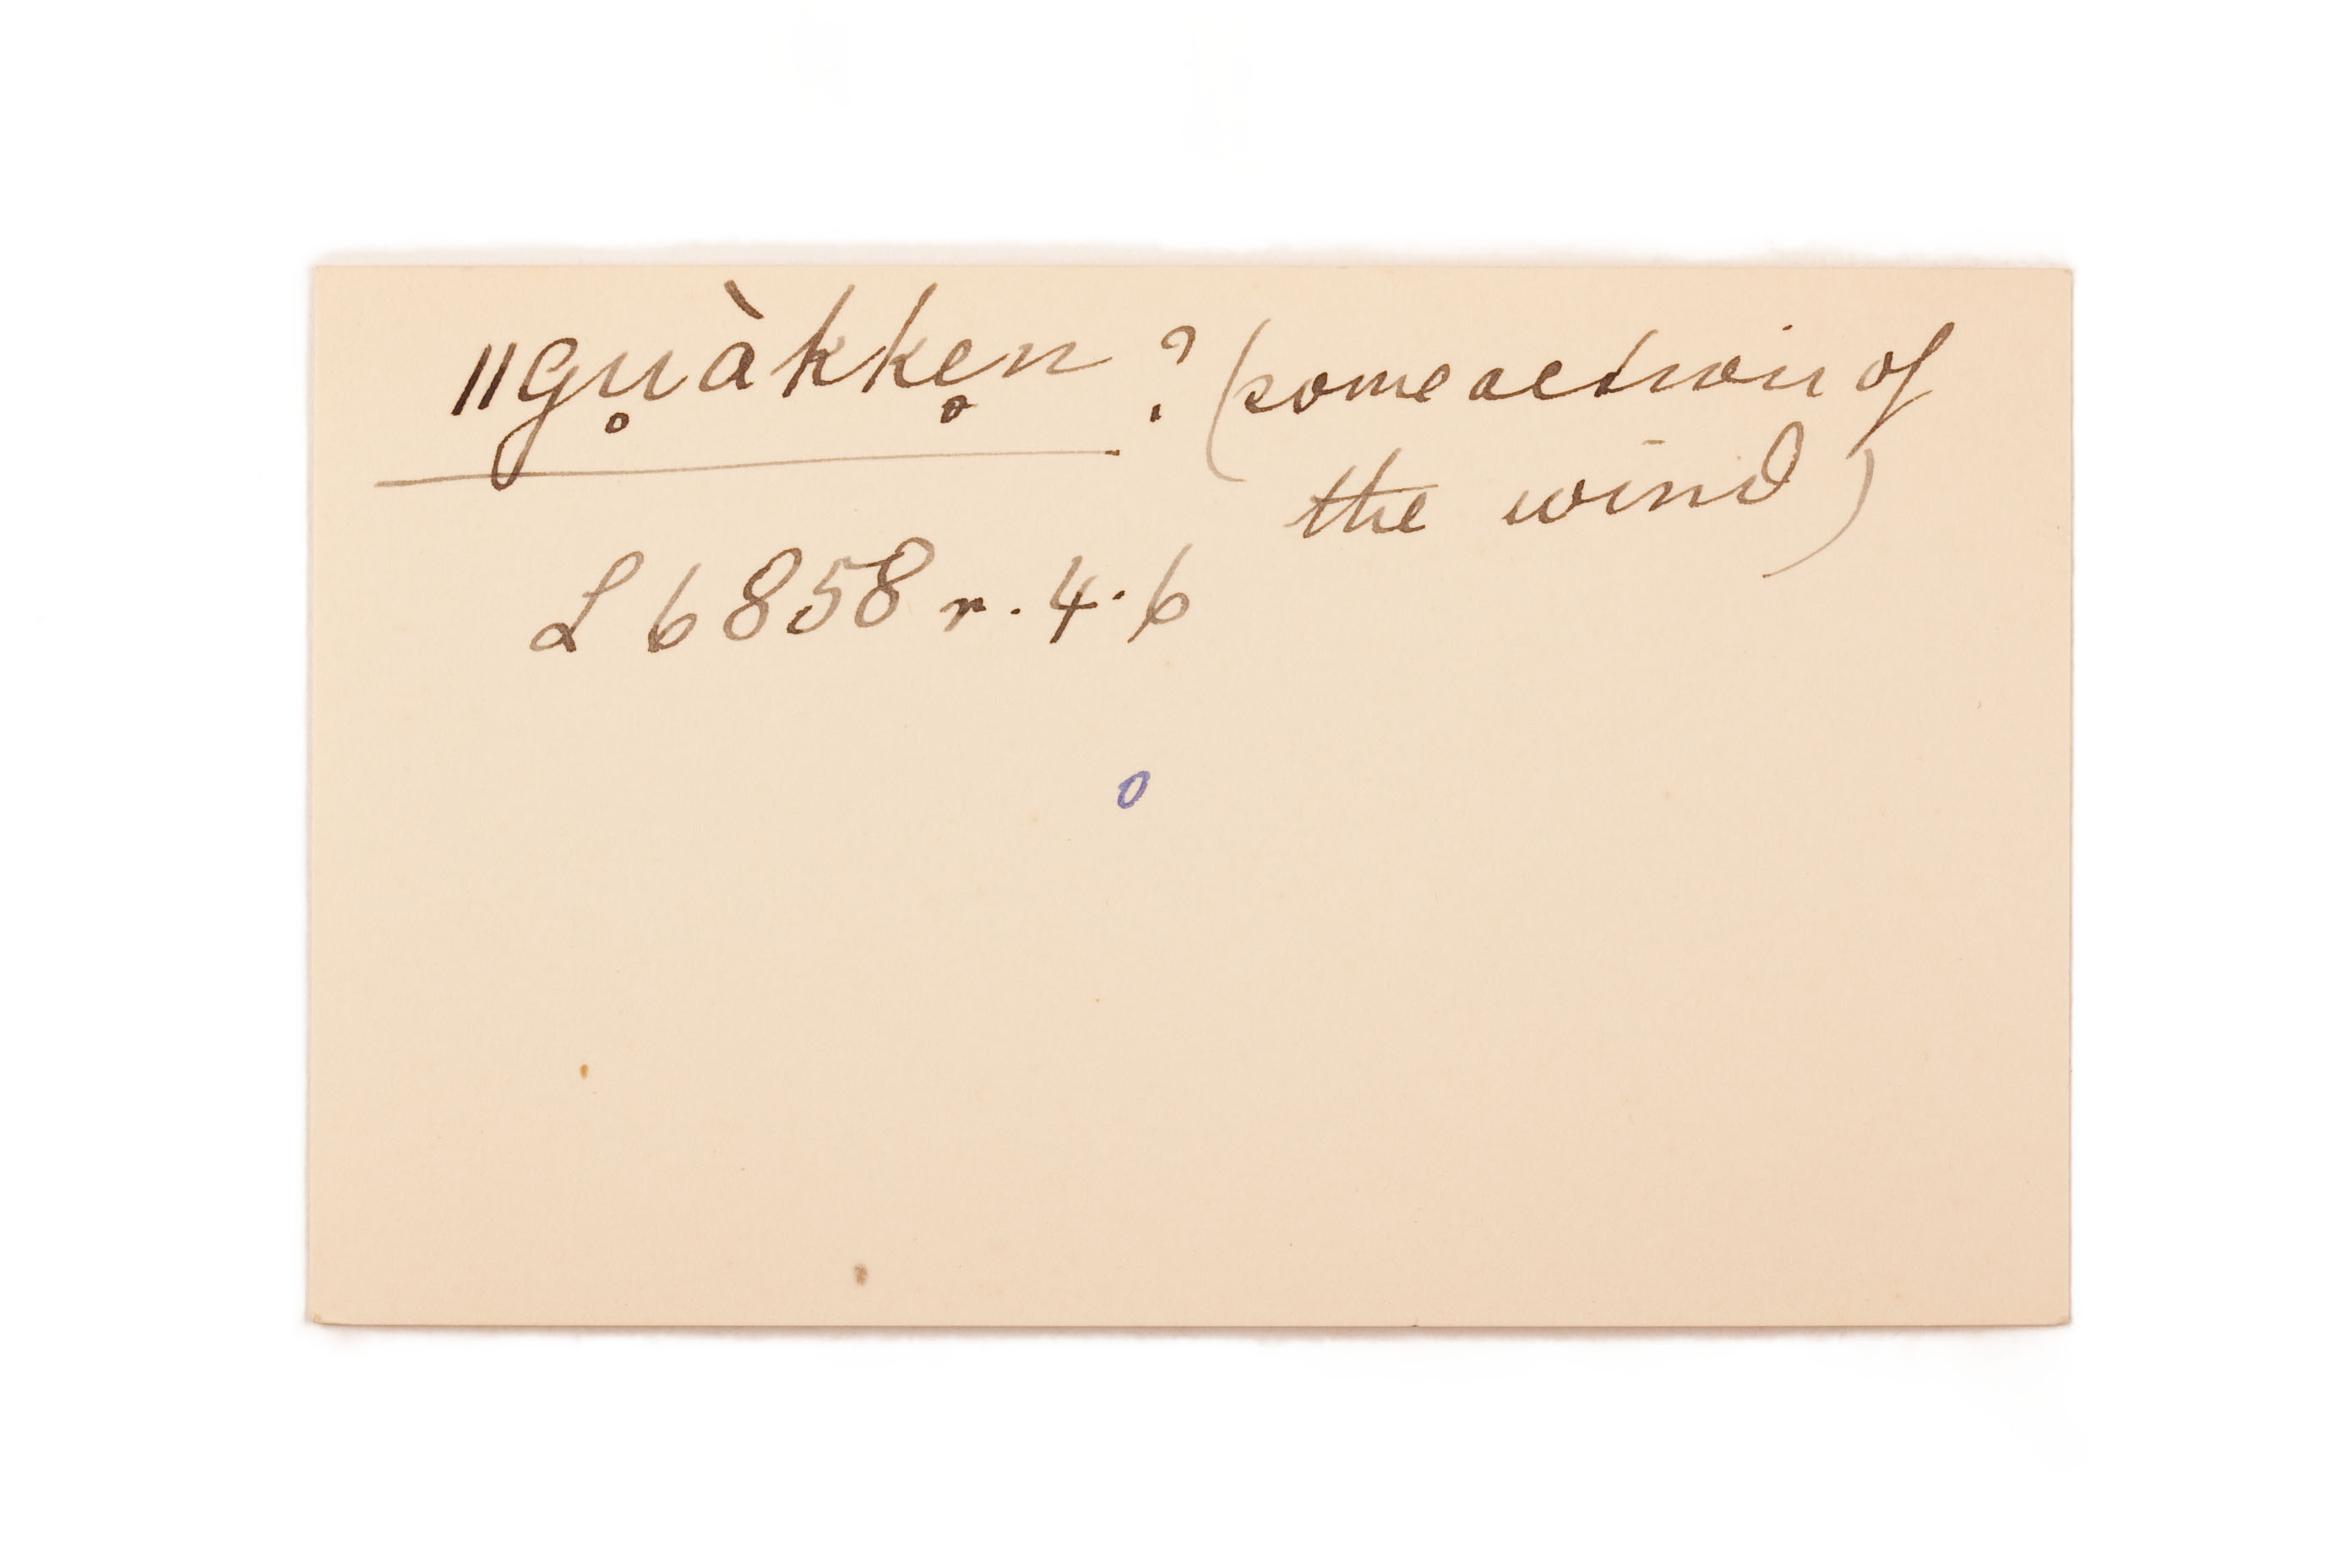 ǁgu̥àkke̥n ? (some action of
the wind)
L 6858 r. 4. 6
o